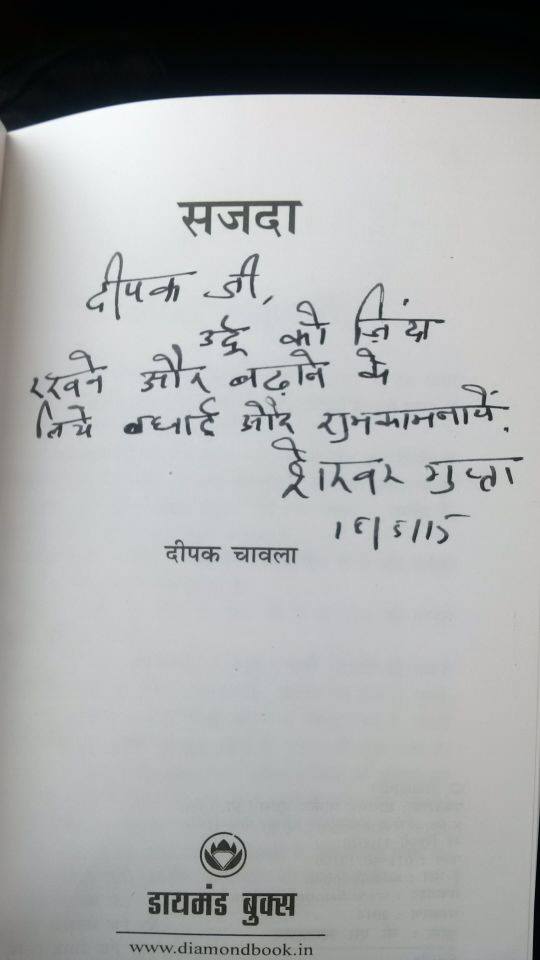 सजदा
दीपक जी,
उर्दू को ज़िंदा
रखने और बढ़ाने के
लिये बधाई और शुभकामनायें.
शेखर गुप्ता
१६/६/15
दीपक चावला
डायमंड बुक्स
www.diamondbook.in